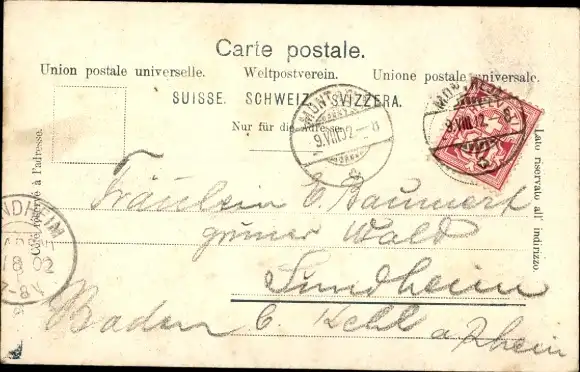 Carte postale.
Union postale universelle. Weltpostverein. Unione postale universale.
SUISSE. SCHWEIZ. SVIZZERA.
Nur für die Adresse.
Côté réservé à l'adresse.
Lato riservato all' indirizzo.
9.VIII.02.-8
9.VIII.02.
Fräulein E. Baumert
grüner Wald
Sundheim
Baden b. Kehl a Rhein
NDHEIM
8 02
7-8V